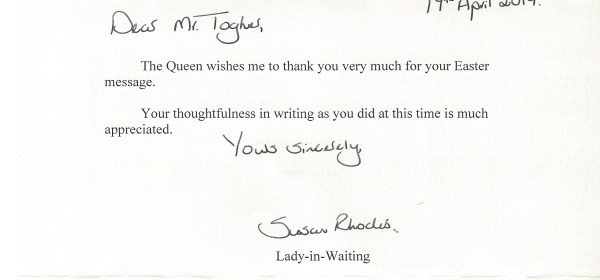 19th April 2019.
Dear Mr. Toghes,
The Queen wishes me to thank you very much for your Easter
message.
Your thoughtfulness in writing as you did at this time is much
appreciated.
Yours sincerely,
Susan Rhodes.
Lady-in-Waiting